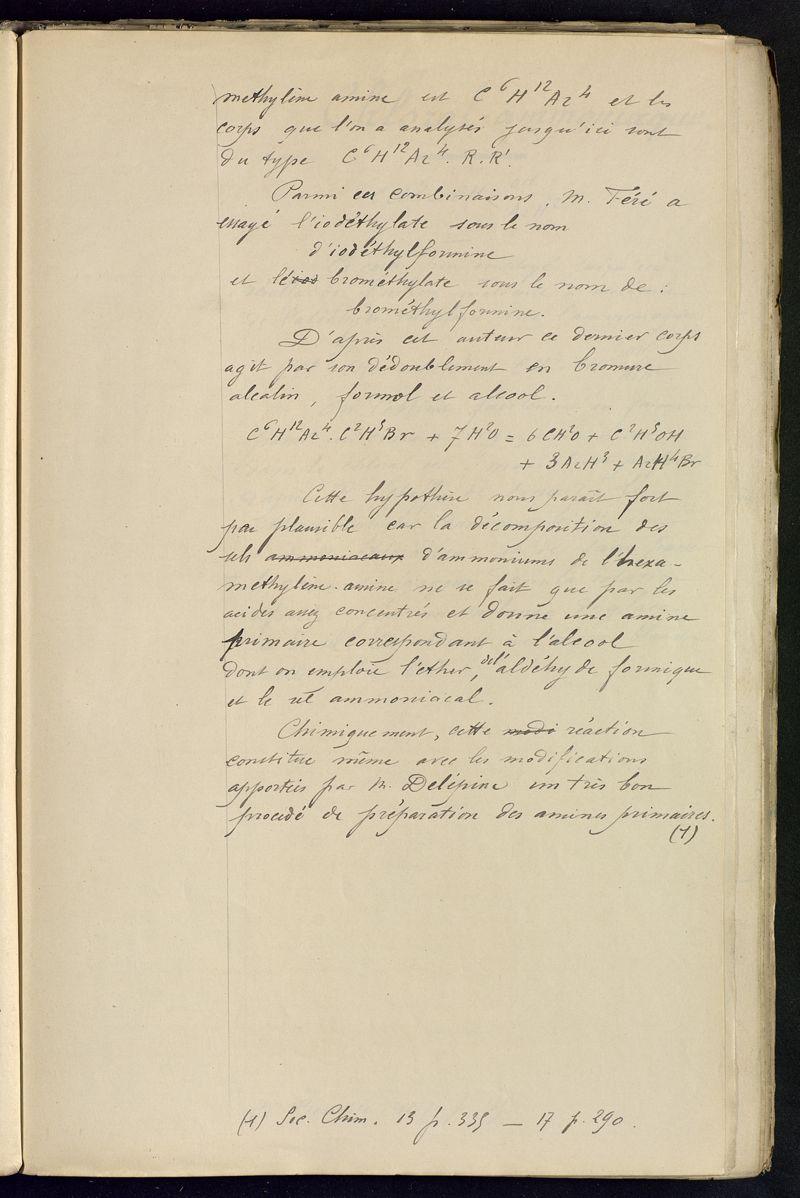 methylène amine est C⁶H¹²Az⁴ et les
corps que l'on a analysés jusqu'ici sont
du type C⁶H¹²Az⁴. R. R'.
Parmi ces combinaisons, M. Féré a
essayé l'iodéthylate sous le nom
d'iodéthylformine
et le brométhylate sous le nom de :
brométhylformine.
D'après cet auteur ce dernier corps
agit par son dédoublement en bromure
alcalin, formol et alcool.
C⁶H¹²Az⁴. C²H⁵Br + 7H²O = 6CH²O + C²H⁵OH
+ 3AzH³ + AzH⁴Br
Cette hypothèse nous paraît fort
peu plausible car la décomposition des
sels ammoniacaux d'ammoniums de l'hexa-
methylène-amine ne se fait que par les
acides assez concentrés et donne une amine
primaire correspondant à l'alcool
dont on emploie l'ether, del'aldéhyde formique
et le sel ammoniacal.
Chimiquement, cette modi réaction
constitue même avec les modifications
apportées par M. Delépine un très bon
procédé de préparation des amines primaires.
(1)
(1) Soc. Chim. 13 p. 335 — 17 p. 290.